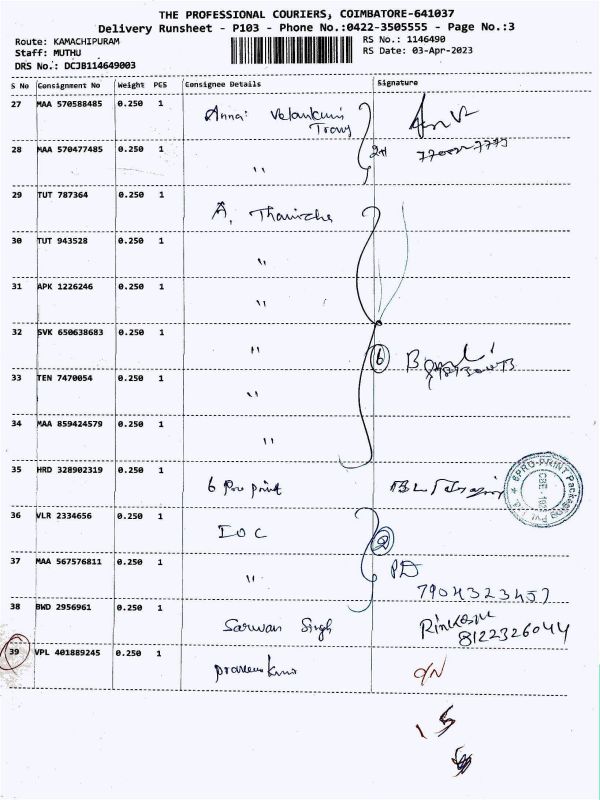 THE PROFESSIONAL COURIERS, COIMBATORE-641037
Delivery Runsheet - P103 - Phone No.:0422-3505555 - Page No.:3
Route: KAMACHIPURAM
RS No.: 1146490
Staff: MUTHU
RS Date: 03-Apr-2023
DRS No.: DCJB114649003
S No Consignment No Weight PCS Consignee Details Signature
27 MAA 570588485 0.250 1 Annai
28 MAA 570477485 0.250 1 "
29 TUT 787364 0.250 1 A,
30 TUT 943528 0.250 1 "
31 APK 1226246 0.250 1 "
32 SVK 650638683 0.250 1 " 6
33 TEN 7470054 0.250 1 "
34 MAA 859424579 0.250 1 "
35 HRD 328902319 0.250 1 6 Pro print
6PRO-PRINT Packaging
36 VLR 2334656 0.250 1 IOC 2
37 MAA 567576811 0.250 1 " PD
7904323457
38 BWD 2956961 0.250 1 Sarwan Singh
8122326044
39 VPL 401889245 0.250 1
15